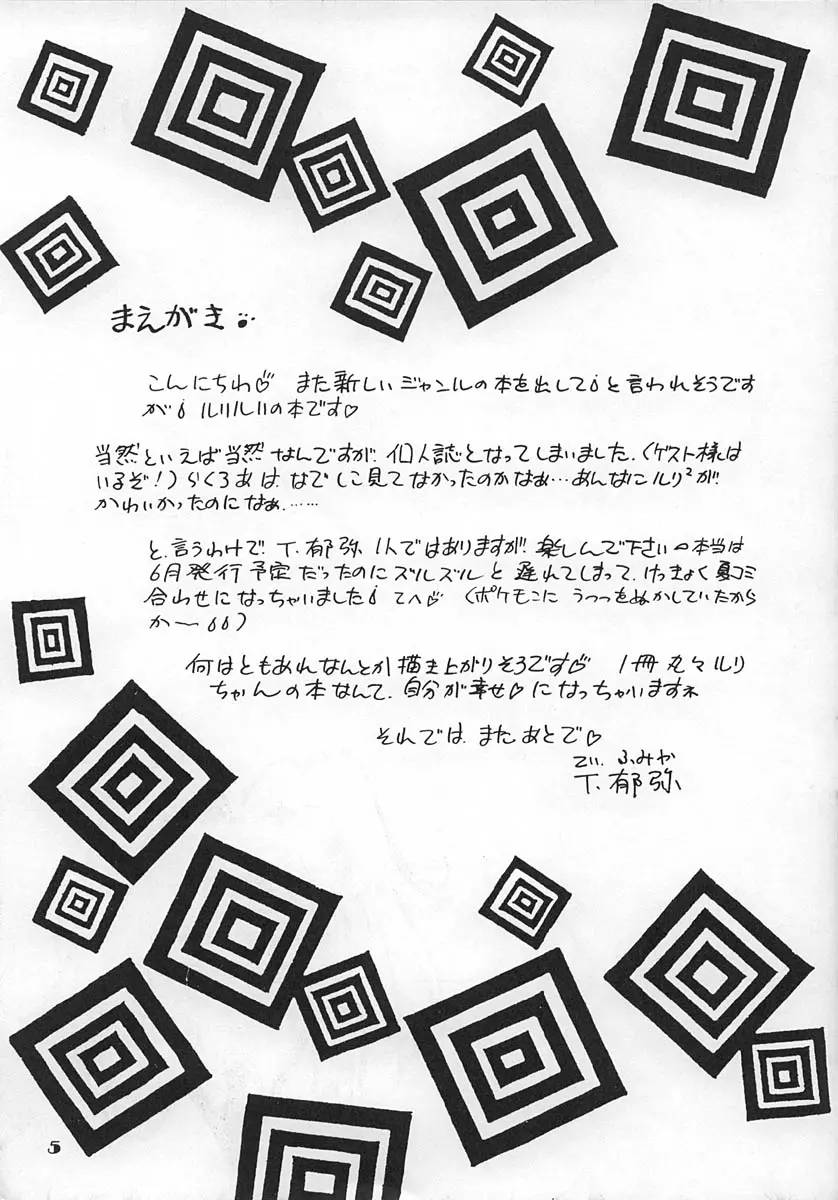 まえがき
こんにちわ♡ また新しいジャンルの本を出して、と言われそうです
が、ルリルリの本です♡
当然といえば当然なんですが、個人誌となってしまいました.(ゲスト様は
いるぞ!)らくろあは、なでしこ見てなかったのかなぁ…あんなにルリ²が
かわいかったのになぁ.……
と、言うわけで T.郁弥 1人ではありますが、楽しんで下さい 本当は
6月発行予定だったのにズルズルと遅れてしまって、けっきょく夏コミ
合わせになっちゃいました てへ♡ (ポケモンに うつつをぬかしていたから
か〜)
何はともあれなんとか描き上がりそうです♡ 1冊丸々ルリ
ちゃんの本なんて、自分が幸せ♡になっちゃいますネ
それでは、またあとで♡
てぃ.ふみや
T.郁弥
5